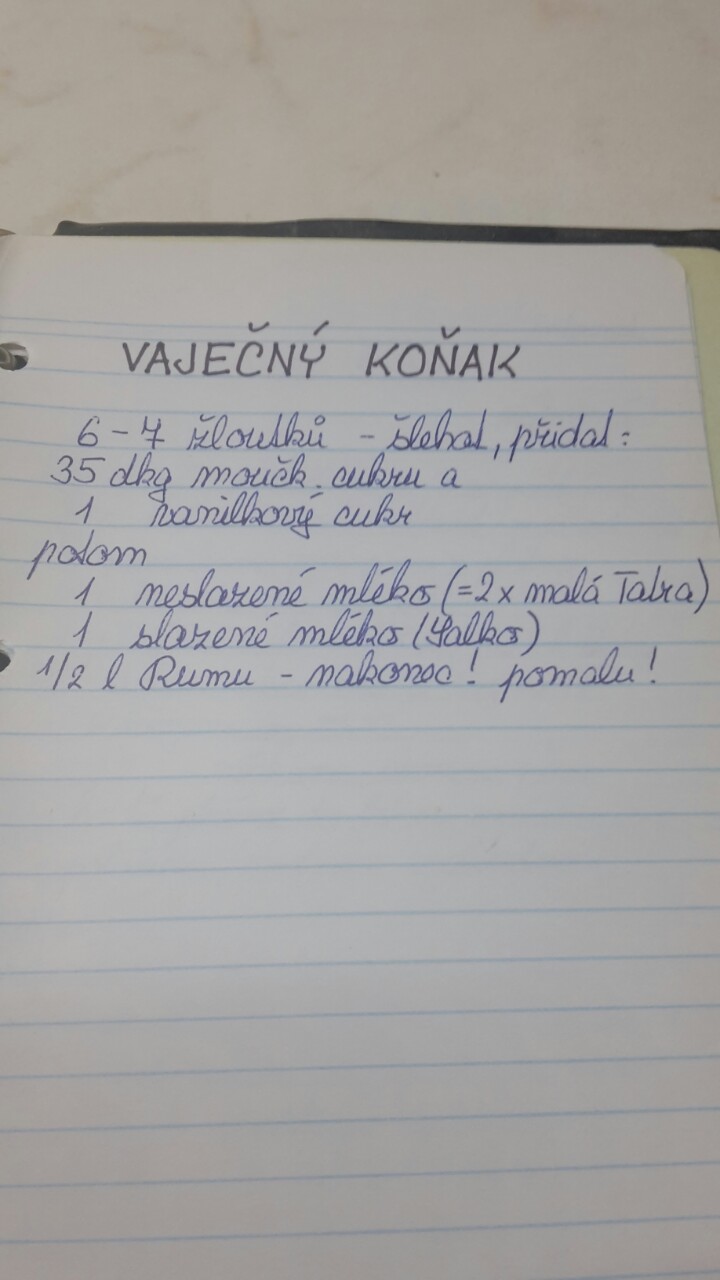 VAJEČNÝ KOŇAK
6-7 žloutků - šlehat, přidat:
35 dkg moučk. cukru a
1 vanilkový cukr
potom
1 neslazené mléko (=2x malá Tatra)
1 slazené mléko (Salko)
1/2 l Rumu - nakonec! pomalu!